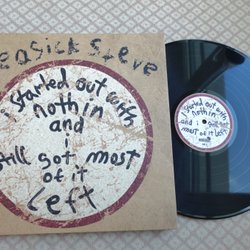 EASICK STEVE
i started out with
nothin
and
i
still got most
of it
left
i started out with
nothin
and i
most of it
left